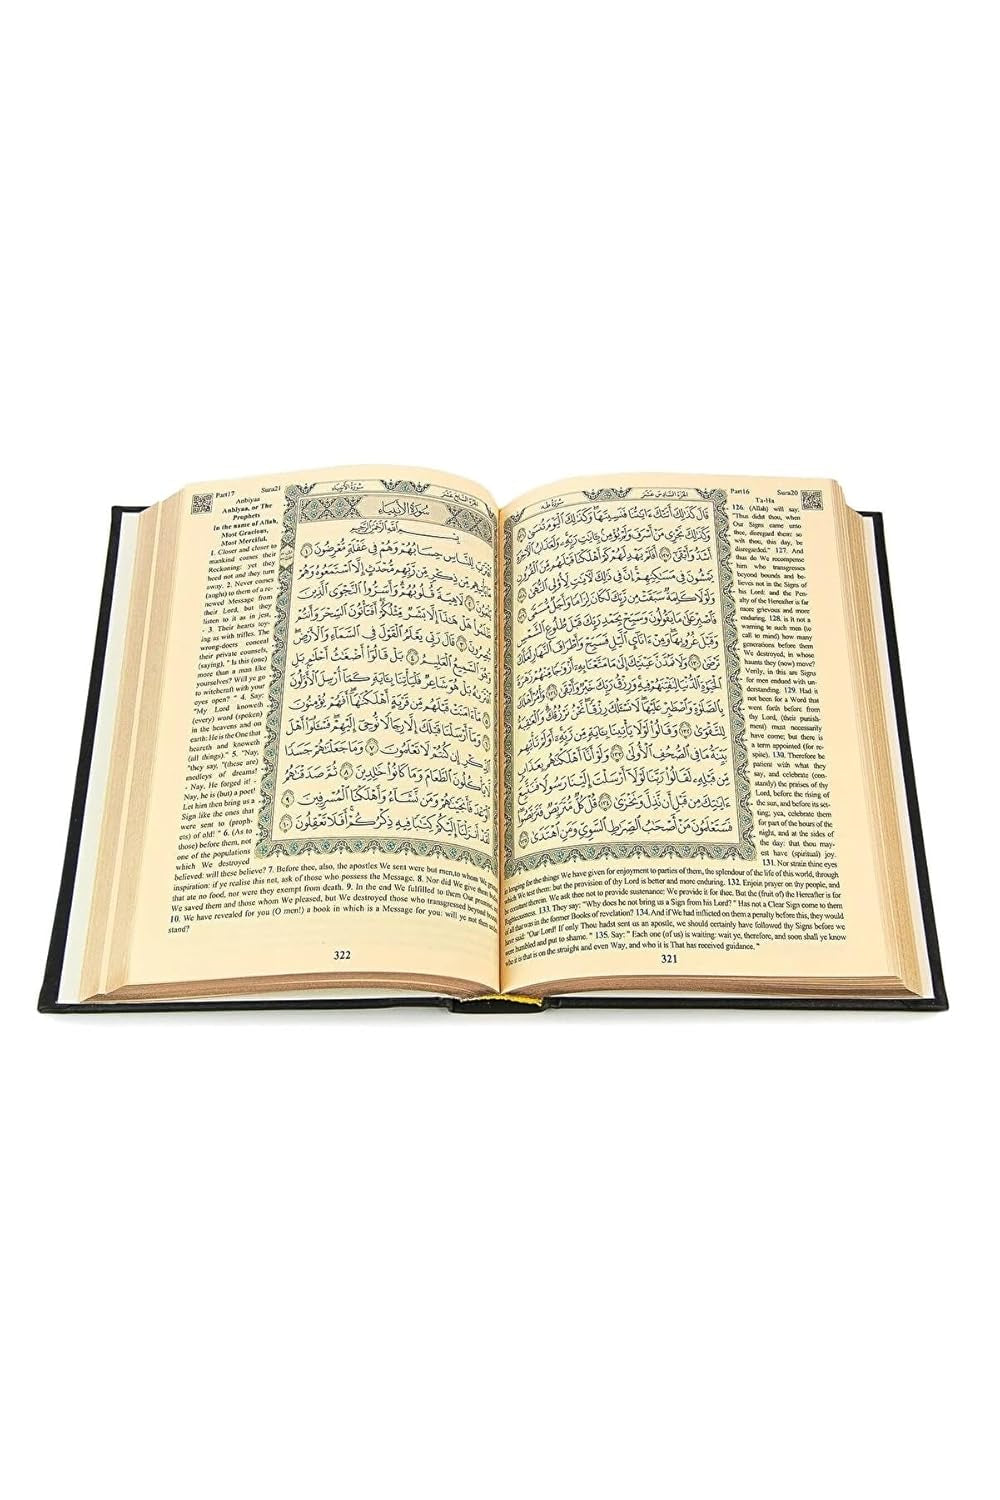 الجزء السادس عشر
سورة طه
قَالَ كَذَٰلِكَ أَتَتْكَ ءَايَٰتُنَا فَنَسِيتَهَا وَكَذَٰلِكَ ٱلْيَوْمَ تُنسَىٰ ١٢٦
وَكَذَٰلِكَ نَجْزِى مَنْ أَسْرَفَ وَلَمْ يُؤْمِنۢ بِـَٔايَٰتِ رَبِّهِۦ وَلَعَذَابُ ٱلْءَاخِرَةِ
أَشَدُّ وَأَبْقَىٰٓ ١٢٧ أَفَلَمْ يَهْدِ لَهُمْ كَمْ أَهْلَكْنَا قَبْلَهُم مِّنَ ٱلْقُرُونِ
يَمْشُونَ فِى مَسَٰكِنِهِمْ إِنَّ فِى ذَٰلِكَ لَءَايَٰتٍ لِّأُو۟لِى ٱلنُّهَىٰ ١٢٨
وَلَوْلَا كَلِمَةٌ سَبَقَتْ مِن رَّبِّكَ لَكَانَ لِزَامًا وَأَجَلٌ مُّسَمًّى ١٢٩
فَٱصْبِرْ عَلَىٰ مَا يَقُولُونَ وَسَبِّحْ بِحَمْدِ رَبِّكَ قَبْلَ طُلُوعِ ٱلشَّمْسِ
وَقَبْلَ غُرُوبِهَا وَمِنْ ءَانَآئِ ٱلَّيْلِ فَسَبِّحْ وَأَطْرَافَ ٱلنَّهَارِ لَعَلَّكَ
تَرْضَىٰ ١٣٠ وَلَا تَمُدَّنَّ عَيْنَيْكَ إِلَىٰ مَا مَتَّعْنَا بِهِۦٓ أَزْوَٰجًا مِّنْهُمْ زَهْرَةَ
ٱلْحَيَوٰةِ ٱلدُّنْيَا لِنَفْتِنَهُمْ فِيهِ وَرِزْقُ رَبِّكَ خَيْرٌ وَأَبْقَىٰ ١٣١ وَأْمُرْ أَهْلَكَ
بِٱلصَّلَوٰةِ وَٱصْطَبِرْ عَلَيْهَا لَا نَسْـَٔلُكَ رِزْقًا نَّحْنُ نَرْزُقُكَ وَٱلْعَٰقِبَةُ
لِلتَّقْوَىٰ ١٣٢ وَقَالُوا۟ لَوْلَا يَأْتِينَا بِـَٔايَةٍ مِّن رَّبِّهِۦٓ أَوَلَمْ تَأْتِهِم
بَيِّنَةُ مَا فِى ٱلصُّحُفِ ٱلْأُولَىٰ ١٣٣ وَلَوْ أَنَّآ أَهْلَكْنَٰهُم بِعَذَابٍ
مِّن قَبْلِهِۦ لَقَالُوا۟ رَبَّنَا لَوْلَآ أَرْسَلْتَ إِلَيْنَا رَسُولًا فَنَتَّبِعَ
ءَايَٰتِكَ مِن قَبْلِ أَن نَّذِلَّ وَنَخْزَىٰ ١٣٤ قُلْ كُلٌّ مُّتَرَبِّصٌ فَتَرَبَّصُوا۟
فَسَتَعْلَمُونَ مَنْ أَصْحَٰبُ ٱلصِّرَٰطِ ٱلسَّوِىِّ وَمَنِ ٱهْتَدَىٰ ١٣٥
Part16 Sura20
Ta-Ha
126. (Allah) will say:
"Thus didst thou, when
Our Signs came unto
thee, disregard them: so
wilt thou, this day, be
disregarded." 127. And
thus do We recompense
him who transgresses
beyond bounds and be-
lieves not in the Signs of
his Lord: and the Pen-
alty of the Hereafter is far
more grievous and more
enduring. 128. is it not a
warning to such men (to
call to mind) how many
generations before them
We destroyed, in whose
haunts they (now) move?
Verily, in this are Signs
for men endued with un-
derstanding. 129. Had it
not been for a Word that
went forth before from
thy Lord, (their punish-
ment) must necessarily
have come; but there is
a term appointed (for re-
spite). 130. Therefore be
patient with what they
say, and celebrate (con-
stantly) the praises of thy
Lord, before the rising of
the sun, and before its set-
ting; yea, celebrate them
for part of the hours of the
night, and at the sides of
the day: that thou may-
est have (spiritual) joy.
131. Nor strain thine eyes
in longing for the things We have given for enjoyment to parties of them, the splendour of the life of this world, through
which We test them: but the provision of thy Lord is better and more enduring. 132. Enjoin prayer on thy people, and
be constant therein. We ask thee not to provide sustenance: We provide it for thee. But the (fruit of) the Hereafter is for
Righteousness. 133. They say: "Why does he not bring us a Sign from his Lord?" Has not a Clear Sign come to them
of all that was in the former Books of revelation? 134. And if We had inflicted on them a penalty before this, they would
have said: "Our Lord! If only Thou hadst sent us an apostle, we should certainly have followed thy Signs before we
were humbled and put to shame. " 135. Say: " Each one (of us) is waiting: wait ye, therefore, and soon shall ye know
who it is that is on the straight and even Way, and who it is That has received guidance. "
321
الجزء السابع عشر
سورة الأنبياء
سورة الأنبياء
بسم الله الرحمن الرحيم
ٱقْتَرَبَ لِلنَّاسِ حِسَابُهُمْ وَهُمْ فِى غَفْلَةٍ مُّعْرِضُونَ ١
مَا يَأْتِيهِم مِّن ذِكْرٍ مِّن رَّبِّهِم مُّحْدَثٍ إِلَّا ٱسْتَمَعُوهُ وَهُمْ
يَلْعَبُونَ ٢ لَاهِيَةً قُلُوبُهُمْ وَأَسَرُّوا۟ ٱلنَّجْوَى ٱلَّذِينَ
ظَلَمُوا۟ هَلْ هَٰذَآ إِلَّا بَشَرٌ مِّثْلُكُمْ أَفَتَأْتُونَ ٱلسِّحْرَ وَأَنتُمْ
تُبْصِرُونَ ٣ قَالَ رَبِّى يَعْلَمُ ٱلْقَوْلَ فِى ٱلسَّمَآءِ وَٱلْأَرْضِ
وَهُوَ ٱلسَّمِيعُ ٱلْعَلِيمُ ٤ بَلْ قَالُوٓا۟ أَضْغَٰثُ أَحْلَٰمٍۭ بَلِ
ٱفْتَرَىٰهُ بَلْ هُوَ شَاعِرٌ فَلْيَأْتِنَا بِـَٔايَةٍ كَمَآ أُرْسِلَ ٱلْأَوَّلُونَ
٥ مَآ ءَامَنَتْ قَبْلَهُم مِّن قَرْيَةٍ أَهْلَكْنَٰهَآ أَفَهُمْ يُؤْمِنُونَ
٦ وَمَآ أَرْسَلْنَا قَبْلَكَ إِلَّا رِجَالًا نُّوحِىٓ إِلَيْهِمْ فَسْـَٔلُوٓا۟ أَهْلَ
ٱلذِّكْرِ إِن كُنتُمْ لَا تَعْلَمُونَ ٧ وَمَا جَعَلْنَٰهُمْ جَسَدًا
لَّا يَأْكُلُونَ ٱلطَّعَامَ وَمَا كَانُوا۟ خَٰلِدِينَ ٨ ثُمَّ صَدَقْنَٰهُمُ
ٱلْوَعْدَ فَأَنجَيْنَٰهُمْ وَمَن نَّشَآءُ وَأَهْلَكْنَا ٱلْمُسْرِفِينَ ٩
لَقَدْ أَنزَلْنَآ إِلَيْكُمْ كِتَٰبًا فِيهِ ذِكْرُكُمْ أَفَلَا تَعْقِلُونَ ١٠
Part17 Sura21
Anbiyaa
Anbiyaa, or The
Prophets
In the name of Allah,
Most Gracious,
Most Merciful.
1. Closer and closer to
mankind comes their
Reckoning: yet they
heed not and they turn
away. 2. Never comes
(aught) to them of a re-
newed Message from
their Lord, but they
listen to it as in jest,
- 3. Their hearts toy-
ing as with trifles. The
wrong-doers conceal
their private counsels,
(saying), " Is this (one)
more than a man like
yourselves? Will ye go
to witchcraft with your
eyes open? " 4. Say:
"My Lord knoweth
(every) word (spoken)
in the heavens and on
earth: He is the One that
heareth and knoweth
(all things)." 5. "Nay,
"they say, "(these are)
medleys of dreams!
- Nay, He forged it! -
Nay, he is (but) a poet!
Let him then bring us a
Sign like the ones that
were sent to (proph-
ets) of old! " 6. (As to
those) before them, not
one of the populations
which We destroyed
believed: will these believe? 7. Before thee, also, the apostles We sent were but men, to whom We granted
inspiration: if ye realise this not, ask of those who possess the Message. 8. Nor did We give them bodies
that ate no food, nor were they exempt from death. 9. In the end We fulfilled to them Our promise, and
We saved them and those whom We pleased, but We destroyed those who transgressed beyond bounds.
10. We have revealed for you (O men!) a book in which is a Message for you: will ye not then under-
stand?
322